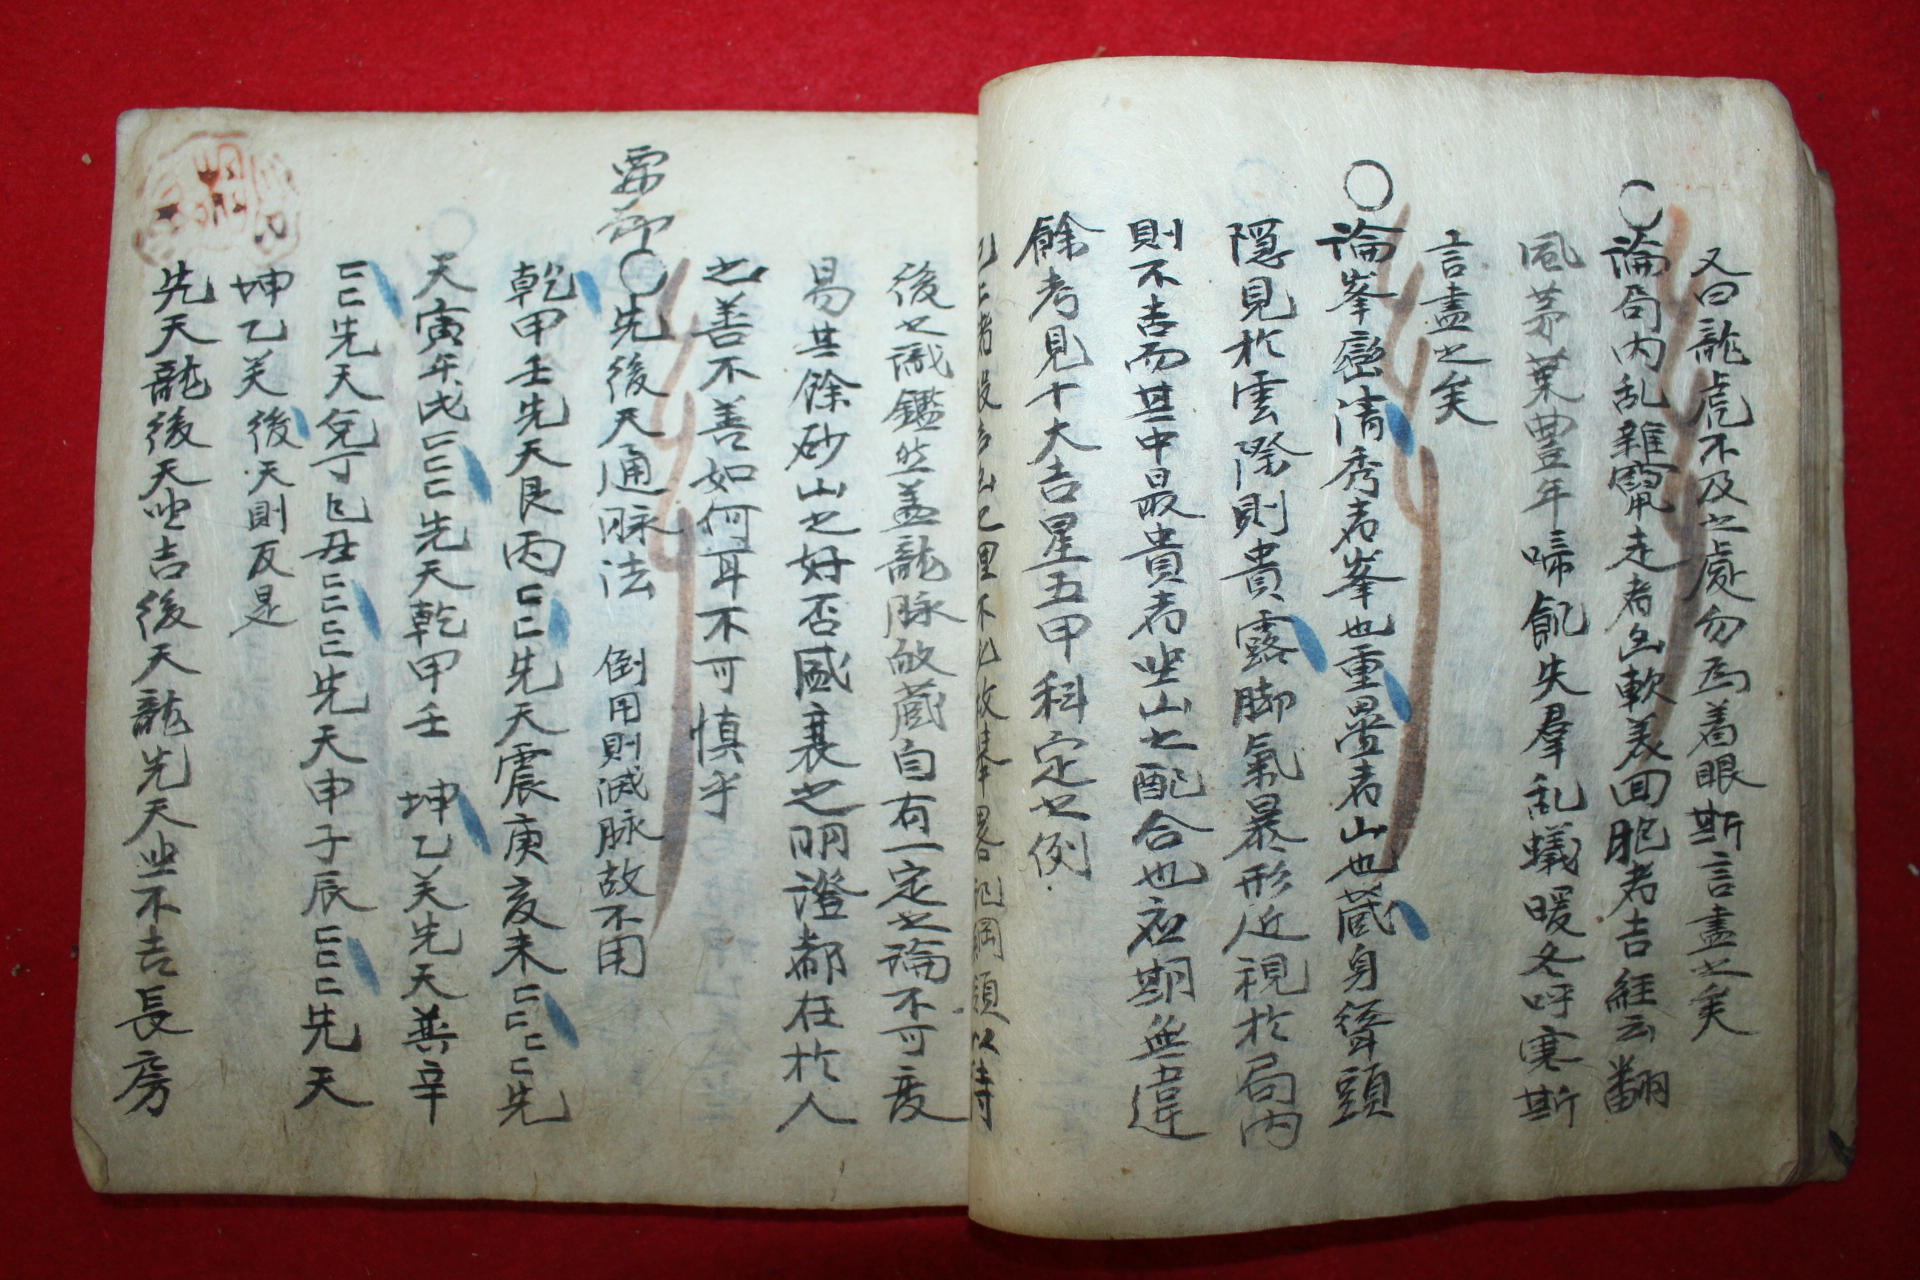 又曰龍虎不及之處勿爲着眼斯言盡之矣
○論局內乱雜竄走者凶軟美回胞者吉經云翻
風茅葉豊年啼飢失羣乱蟻暖冬呼寒斯
言盡之矣
○論峯巒淸秀者峯也重疊者山也藏身聳頭
隱見於雲際則貴露脚氣暴形近視於局內
則不吉而其中最貴者坐山之配合也應期無違
餘考見十大吉星五甲科定之例
後之識鑑然盖龍脉敀藏自有一定之論不可变
易其餘砂山之好否盛衰之明澄都在於人
之善不善如何耳不可愼乎
要卽
○先後天通脉法 倒用則滅脉故不用
乾甲壬先天艮丙☳先天震庚亥未☳先
天寅午戌☵先天乾甲壬 坤乙关先天巽辛
☵先天兌丁巳丑☵先天申子辰☵先天
坤乙关後天則反是
先天龍後天坐吉後天龍先天坐不吉長房